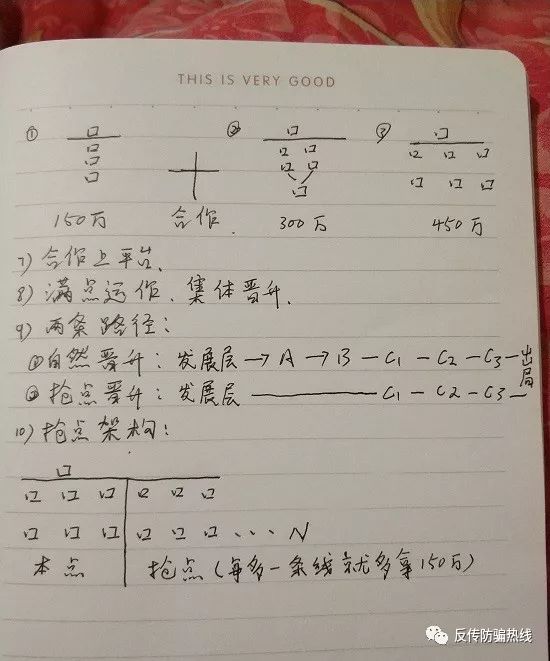 THIS IS VERY GOOD
① ② ③
150万 合作. 300万 450万
7) 合作上平台.
8) 满点运作、集体晋升.
9) 两条路径：
①自然晋升：发展层→A→B—C1—C2—C3—出局
②抢点晋升：发展层———C1—C2—C3—
10) 抢点架构：
... N
本点 抢点（每多一条线就多拿150万）
反传防骗热线